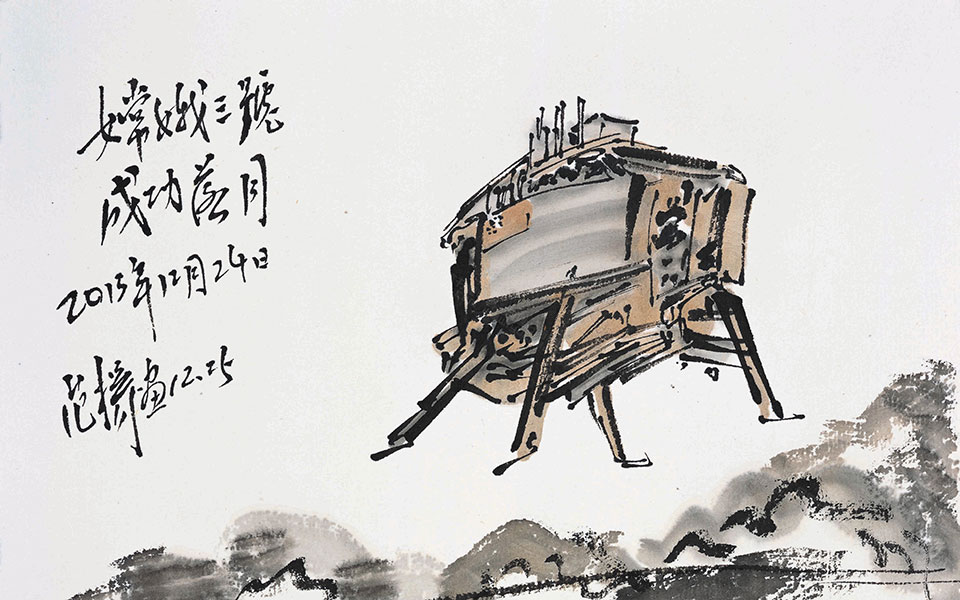 嫦娥三號
成功落月
2013年12月24日
范 畫12.25